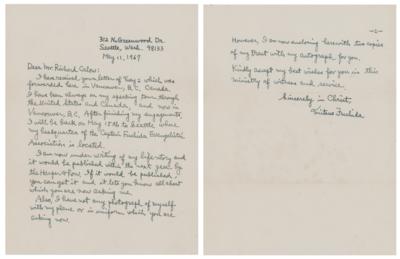 302 N. Greenwood Dr.
Seattle, Wash. 98133
May 11, 1967
Dear Mr. Richard Calow:
I have received your letter of May 2 which was
forwarded here in Vancouver, B.C. Canada
I have been always on my speaking tour through
the United States and Canada, and now in
Vancouver, B.C. After finishing my engagements,
I will be back on May 15th to Seattle where
my headquarter of the Captain Fuchida Evangelistic
Association is located.
I am now under writing of my life story and
it would be published within the next year by
the Harper & Row. If it would be published,
you can get it and it lets you know all about
which you are now asking me.
Also, I have not any photograph of myself
with my plane or in uniform which you are
asking now.
-2-
However, I am now enclosing herewith two copies
of my tract with my autograph for you.
Kindly accept my best wishes for you in this
ministry of witness and service.
Sincerely in Christ
Mitsuo Fuchida